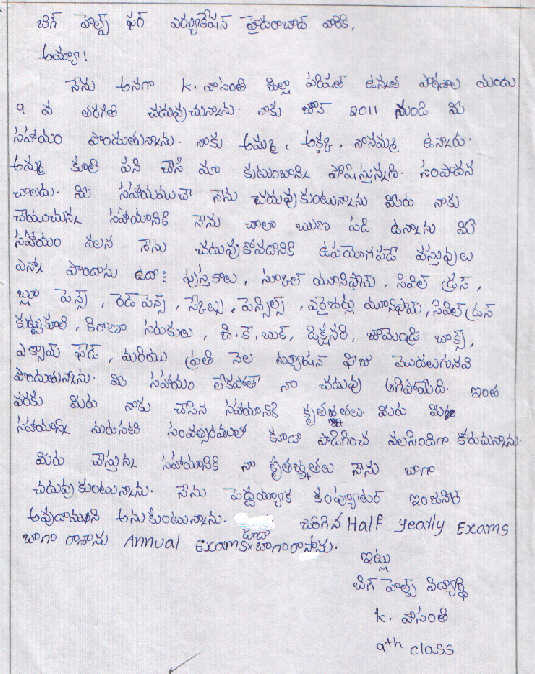 బిగ్ హెల్ప్ ఫర్ ఎడ్యుకేషన్ హైదరాబాద్ వారికి,
అయ్యా!
నేను అనగా K. వాసంతి జిల్లా పరిషత్ ఉన్నత పాఠశాల యందు
9 వ తరగతి చదువుచున్నాను. నాకు జూన్ 2011 నుండి మీ
సహాయం పొందుతున్నాను. నాకు అమ్మ, అక్క, నానమ్మ ఉన్నారు.
అమ్మ కూలి పని చేసి మా కుటుంబాన్ని పోషిస్తున్నది. సంపాదన
చాలదు. మీ సహాయముచే నేను చదువుకుంటున్నాను మీరు నాకు
చేయుచున్న సహాయానికి నేను చాలా ఋణ పడి ఉన్నాను మీ
సహాయం వలన నేను చదువుకోవడానికి ఉపయోగపడే వస్తువులు
ఎన్నో పొందాను ఉదా: పుస్తకాలు, స్కూల్ యూనిఫామ్, సివిల్ డ్రస్,
బ్లూ పెన్స్, రెడ్ పెన్స్, స్కేల్స్, పెన్సిల్స్, యూనిఫామ్, సివిల్ డ్రస్
కుట్టుకూలి, కిరాణా సరుకులు, జి.కె.బుక్, డిక్షనరి, జామెంట్రి బాక్స్,
ఎక్సామ్ ప్యాడ్, మరియు ప్రతి నెల ట్యూషన్ ఫీజు మొదలుగునవి
పొందుతున్నాను. మీ సహాయం లేకపోతే నా చదువు ఆగిపోయేది. ఇంత
వరకు మీరు నాకు చేసిన సహాయానికి కృతజ్ఞతలు మీరు మీ
సహాయాన్ని మరుసటి సంవత్సరములో కూడా పొడిగించ వలసిందిగా కోరుచున్నాను
మీరు చేస్తున్న సహాయానికి నా కృతజ్ఞతలు నేను బాగా
చదువుకుంటున్నాను. నేను పెద్దయ్యాక కంప్యూటర్ ఇంజనీర్
అవుదామని అనుకుంటున్నాను. జరిగిన Half yeally Exams
బాగా రాసాను Annual Exams కూడా బాగా రాసాను.
ఇట్లు
బిగ్ హెల్ప్ విద్యార్థి
K. వాసంతి
9th class